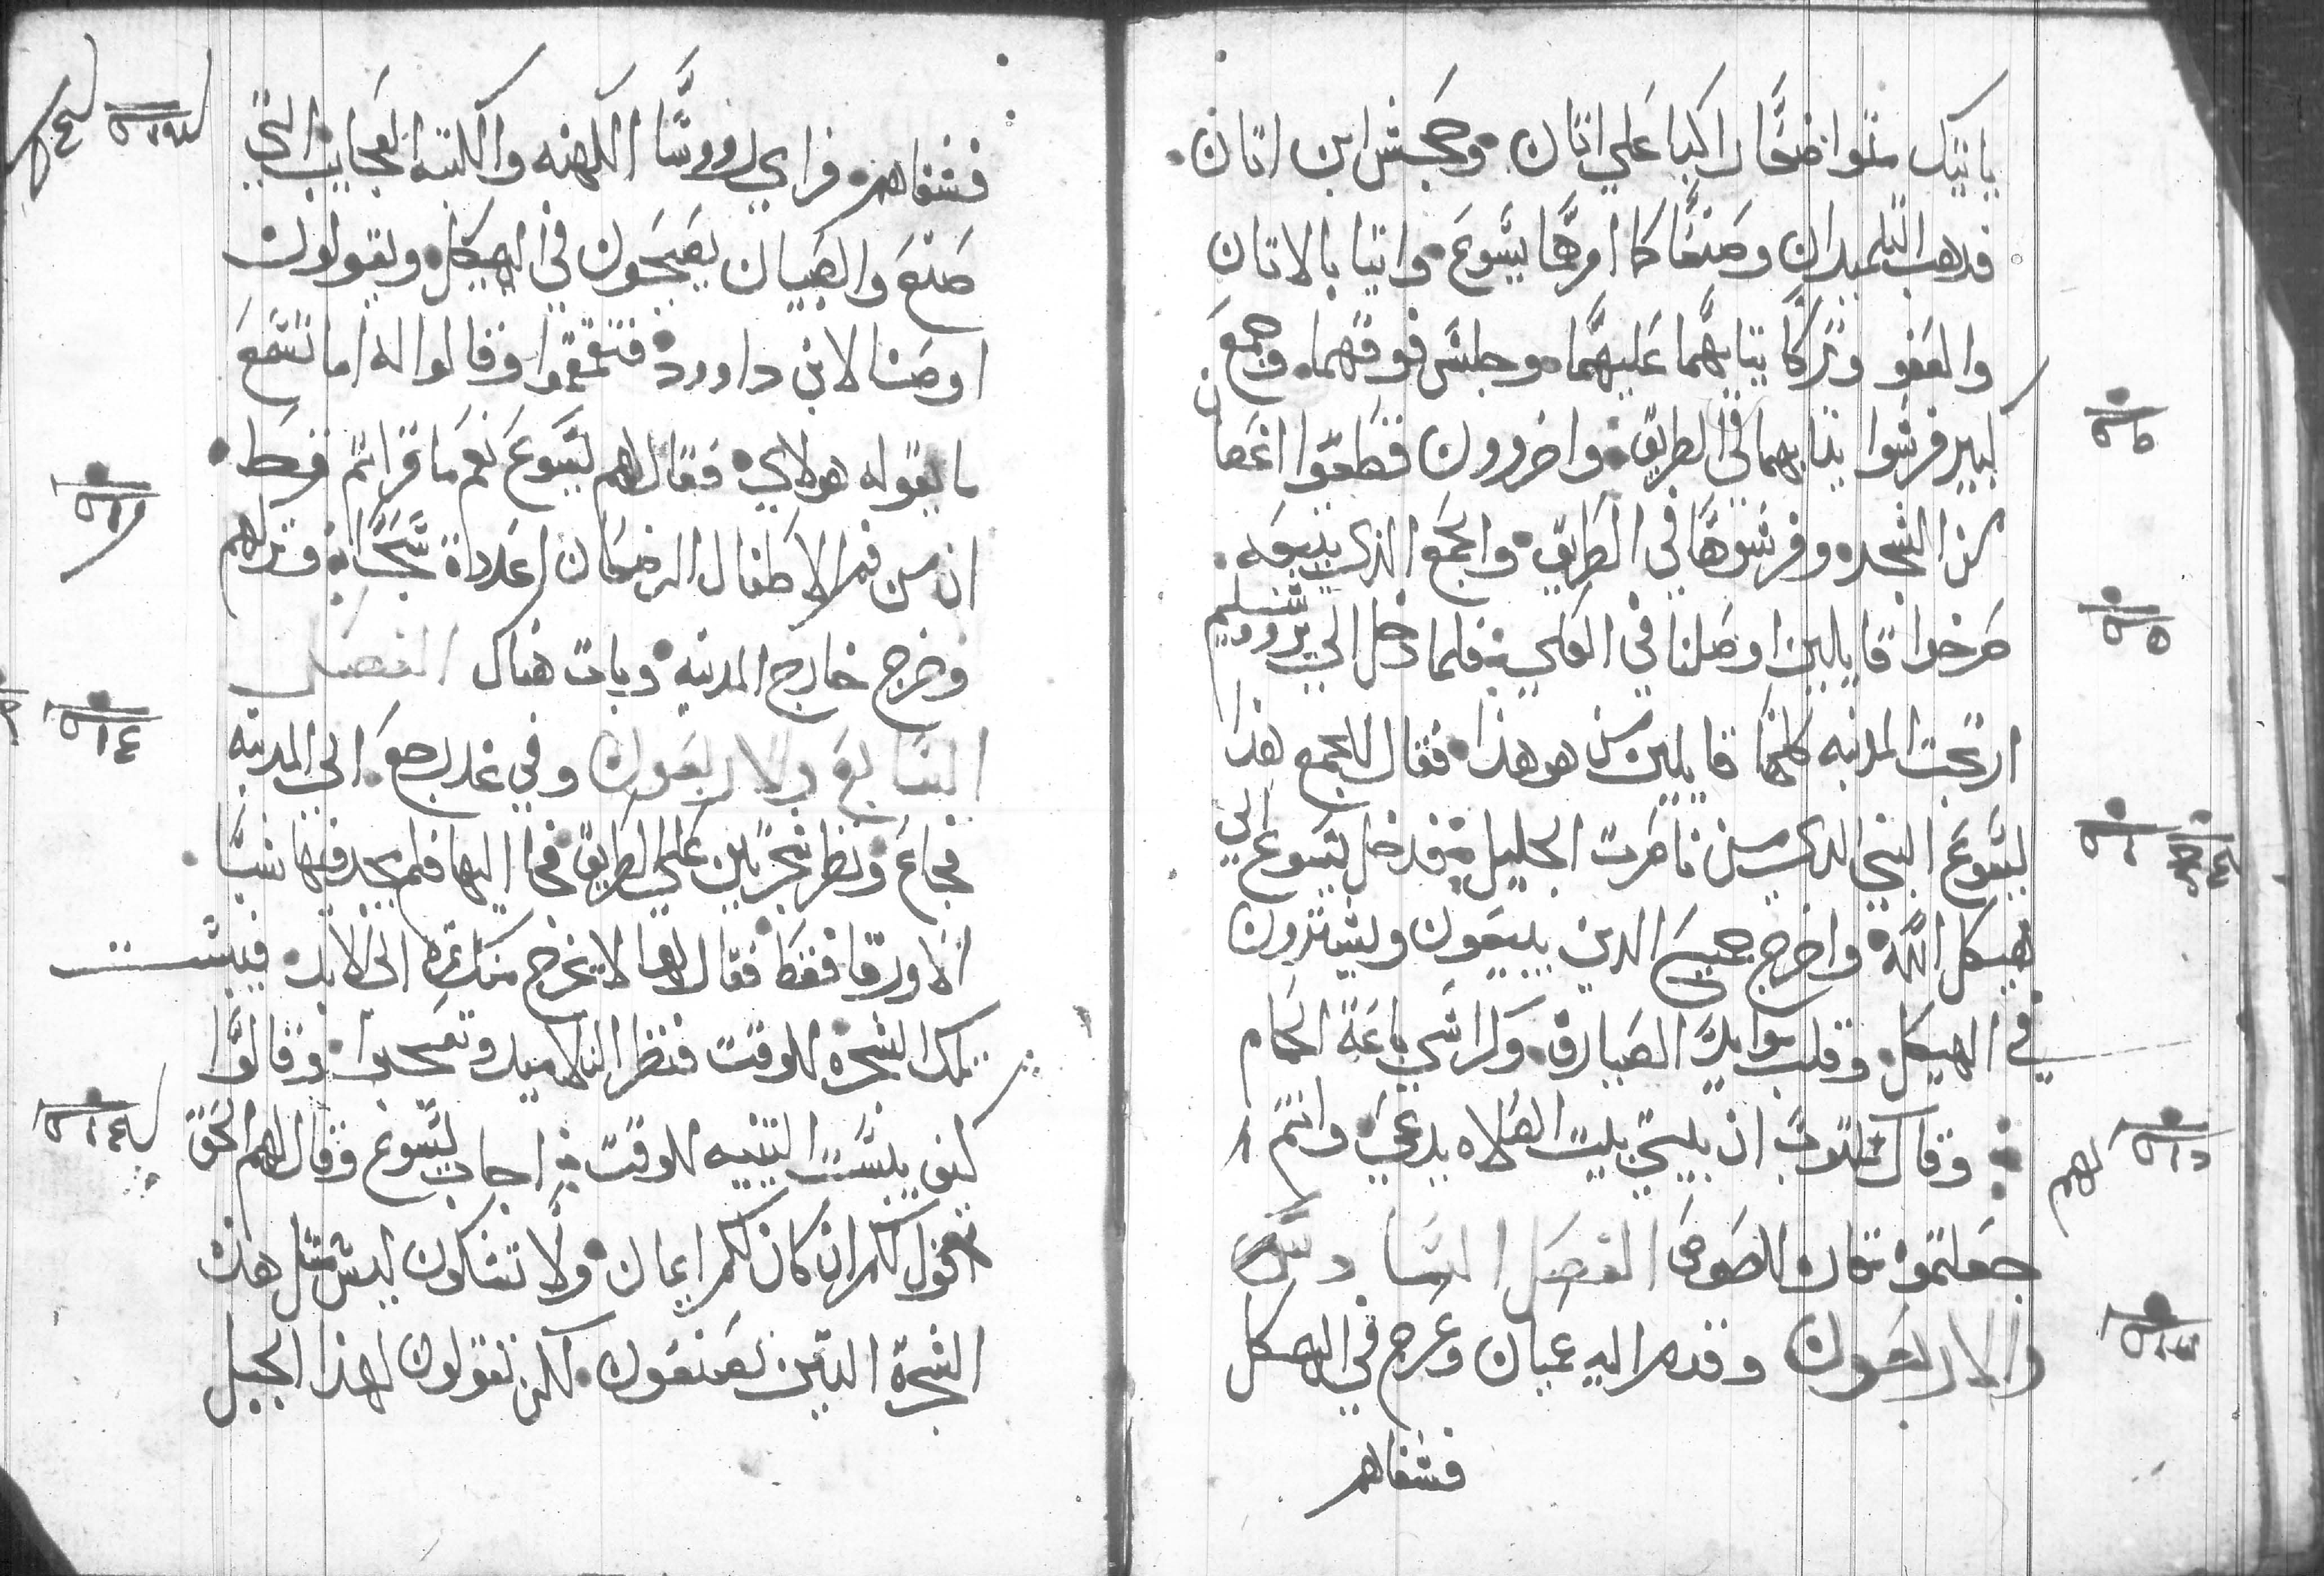 ياتيك متواضعا راكبا علي اتان وجحش ابن اتان
فدهب التلميدان وصنعا كما امرهما يسوع واتيا بالاتان
والعفو وتركا تيابهما عليهما وجلس فوقهما وجمع
كبير فرشوا تيابهما في الطريق واخرون فقطعوا اغصان
من الشجره وفرشوها في الطريق والجمع الذي يتبعه
صرخوا قايلين اوصنا في العلي فلما دخل الي يروشليم
ارتجت المدينه كلها قايلين من هو هذا فقال الجمع هذا
يسوع النبي الذي من ناصرت الجليل فدخل يسوع الي
هيكل الله واخرج جميع الدين يبيعون ويشترون
في الهيكل وقلب موايد الصيارف وكراسي باعة الحمام
وقال لهم مكتوب ان بيتي بيت الصلاه يدعي وانتم
جعلتموه مغارة للصوص الفصل السادس
والاربعون وقدم اليه عميان وعرج في الهيكل
فشفاهم
فشفاهم فراي رووسا الكهنه والكتبه العجايب التي
صنع والصبيان يصيحون في الهيكل ويقولون
اوصنا لابن داوود فتقمقموا وقالوا له اما تسمع
ما يقوله هولاي فقال لهم يسوع نعم ما قراتم قط
ان من فم الاطفال الرضعان اعددت سبحا وتركهم
وخرج خارج المدينه وبات هناك الفصل
السابع والاربعون وفي غد رجع الي المدينه
فجاع ونظر شجرة تين علي الطريق فجا اليها فلم يجد فيها شيا
الا ورقا فقط فقال لها لا يخرج منك تمره الي الابد فيبست
تلك الشجره للوقت فنظر التلاميد وتعجبوا وقالوا
كيف يبست التينه للوقت اجاب يسوع وقال لهم الحق
اقول لكم ان كان لكم ايمان ولا تشكون ليس مثل هذه
الشجرة التين تصنعون لكن تقولون لهذا الجبل